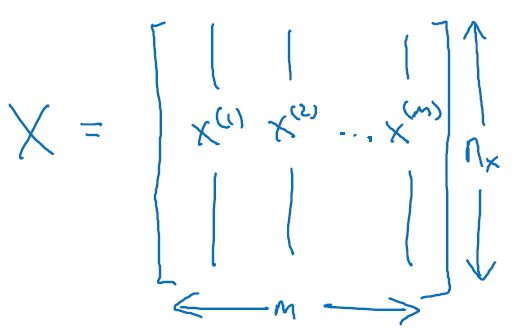 X = x^(1) x^(2) ... x^(m) n_x
m